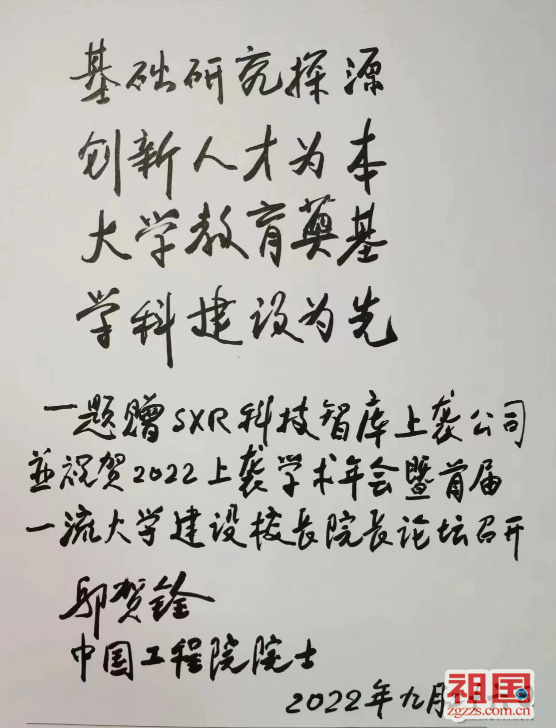 基础研究探源
创新人才为本
大学教育奠基
学科建设为先
一题赠SXR科技智库上袭公司
并祝贺2022上袭学术年会暨首届
一流大学建设校长院长论坛召开
邬贺铨
中国工程院院士
2022年九月
祖国
zgzzs.com.cn